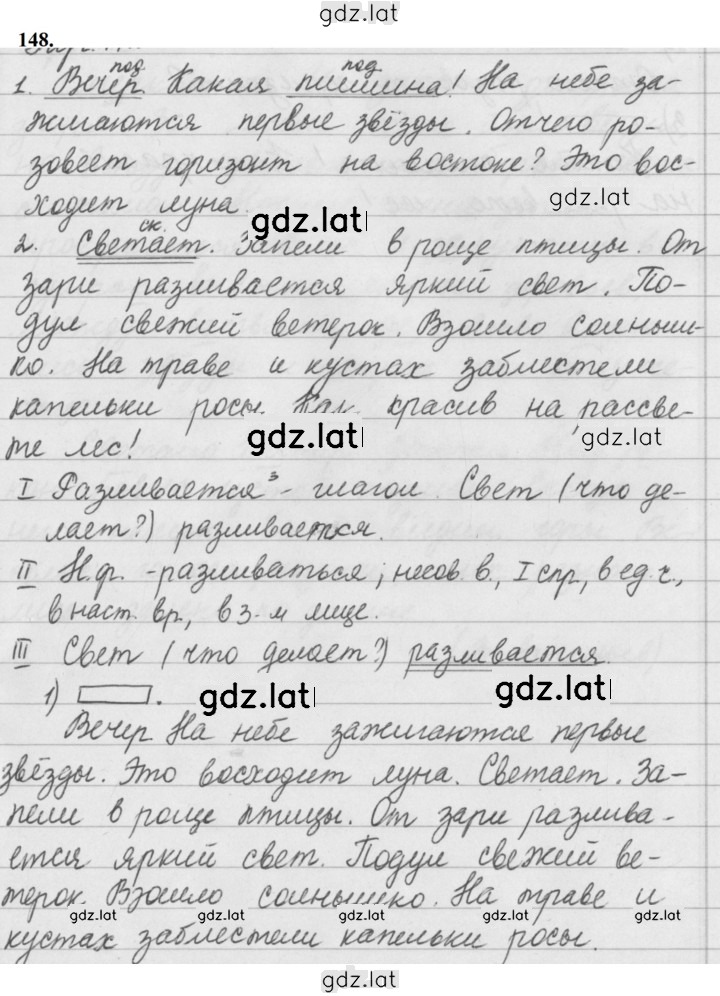 gdz.lat
148.
под под
1. Вечер. Какая тишина! На небе за-
жигаются первые звёзды. Отчего ро-
зовеет горизонт на востоке? Это вос-
gdz.lat
ходит луна.
gdz.lat
ск.
2. Светает. Запели в роще птицы. От
зари разливается яркий свет. По-
дул свежий ветерок. Взошло солныш-
ко. На траве и кустах заблестели
капельки росы. Как красив на рассве-
gdz.lat gdz.lat
те лес!
I Разливается³ - глагол. Свет (что де-
лает?) разливается.
II Н.ф. - разливаться; несов. в., I спр., в ед. ч.,
в наст. вр., в 3-м лице.
III Свет (что делает?) разливается.
1) .
gdz.lat gdz.lat
Вечер. На небе зажигаются первые
звёзды. Это восходит луна. Светает. За-
пели в роще птицы. От зари разлива-
ется яркий свет. Подул свежий ве-
терок. Взошло солнышко. На траве и
gdz.lat gdz.lat gdz.lat gdz.lat
кустах заблестели капельки росы.
gdz.lat